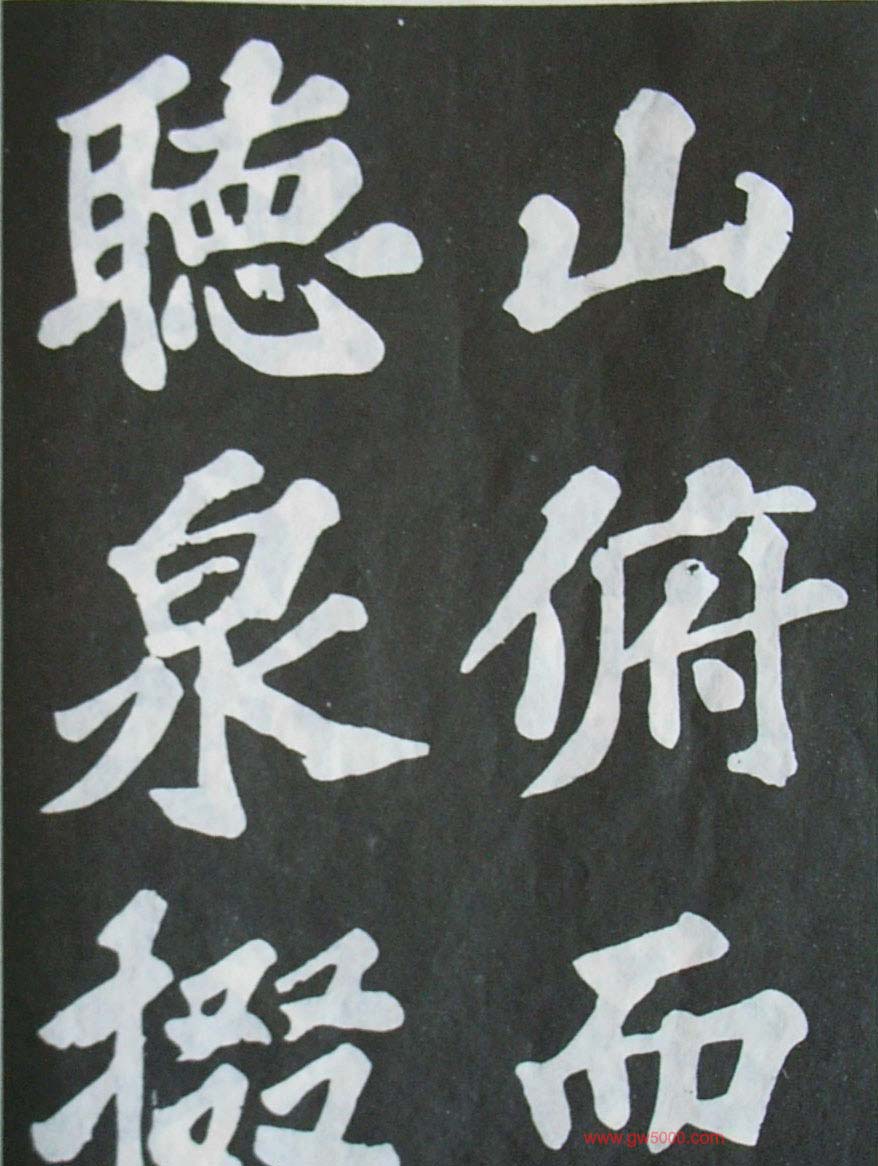 山俯而
聽泉掇
www.gw5000.com